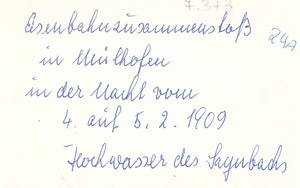 7.373
Eisenbahnzusammenstoß
24a
in Mülhofen
in der Nacht vom
4. auf 5.2.1909
Hochwasser des Saynbachs